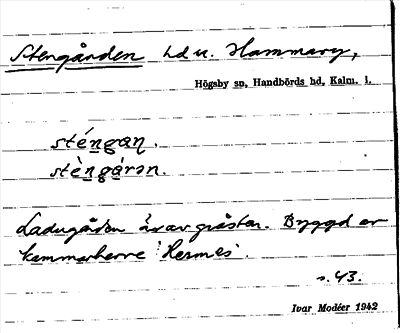 Stengården hd u. Hammary,
Högsby sn, Handbörds hd, Kalm. l.
sténgan.
stèngárən.
Ladugården är av gråsten. Byggd av
kammarherre Hermes.
s. 43.
Ivar Modéer 1942